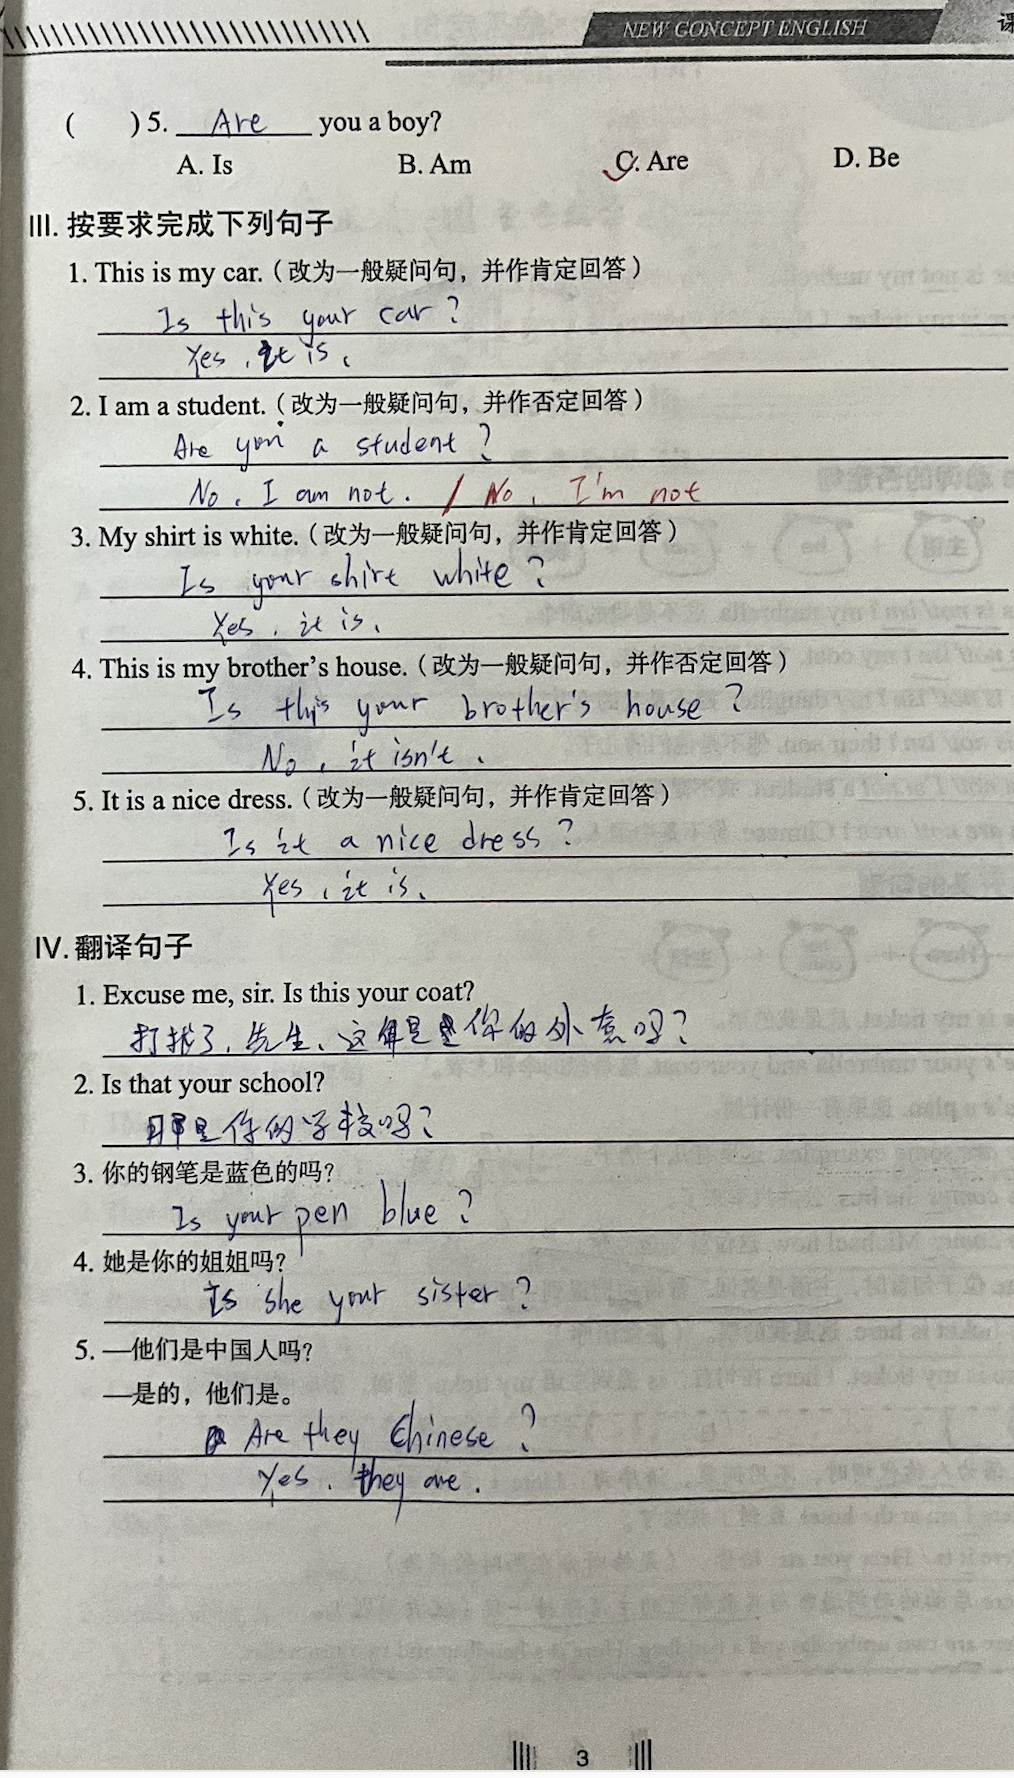 NEW CONCEPT ENGLISH
课
( ) 5. Are you a boy?
A. Is B. Am C. Are D. Be
III. 按要求完成下列句子
1. This is my car. (改为一般疑问句，并作肯定回答)
Is this your car?
Yes, it is.
2. I am a student. (改为一般疑问句，并作否定回答)
Are you a student?
No, I am not. / No, I'm not
3. My shirt is white. (改为一般疑问句，并作肯定回答)
Is your shirt white?
Yes, it is.
4. This is my brother's house. (改为一般疑问句，并作否定回答)
Is this your brother's house?
No, it isn't.
5. It is a nice dress. (改为一般疑问句，并作肯定回答)
Is it a nice dress?
Yes, it is.
IV. 翻译句子
1. Excuse me, sir. Is this your coat?
打扰了，先生，这是你的外套吗？
2. Is that your school?
那是你的学校吗？
3. 你的钢笔是蓝色的吗？
Is your pen blue?
4. 她是你的姐姐吗？
Is she your sister?
5. —他们是中国人吗？
—是的，他们是。
Are they Chinese?
Yes, they are.
3